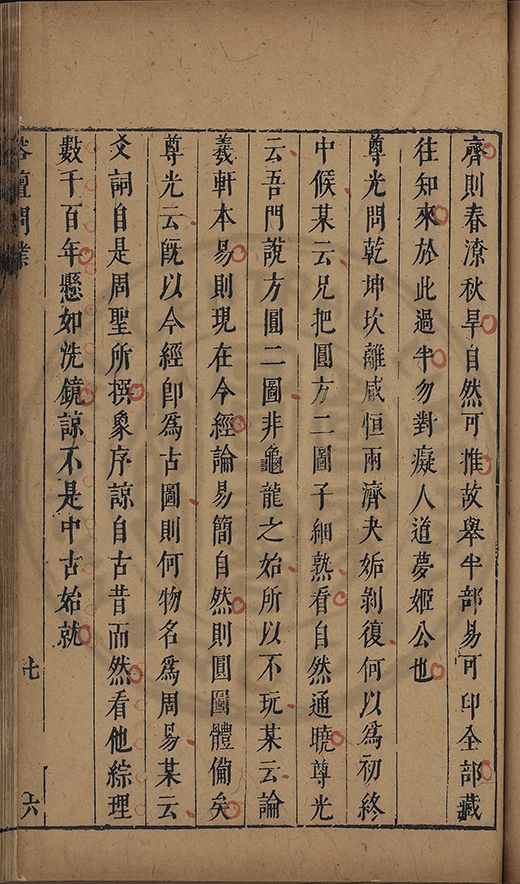 齊則春潦秋旱自然可推故舉半部易可印全部藏
往知來於此過半勿對癡人道夢姬公也
尊光問乾坤坎離咸恒兩濟夬姤剝復何以爲初終
中候某云兄把圓方二圖子細熟看自然通曉尊光
云吾門說方圓二圖非龜龍之始所以不玩某云論
羲軒本易則現在今經論易簡自然則圓圖體備矣
尊光云旣以今經卽爲古圖則何物名爲周易某云
爻詞自是周聖所撰象序諒自古昔而然看他綜理
數千百年懸如洗鏡諒不是中古始就
榕壇問業
七
六